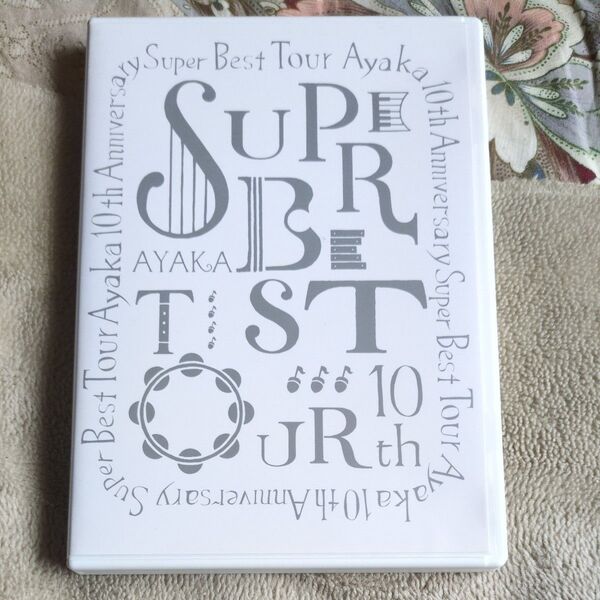 Super Best Tour Ayaka 10th Anniversary Super Best Tour Ayaka 10th Anniversary Super Best Tour Ayaka 10th Anniversary
SUPER
AYAKA
BEST
TOUR
10th